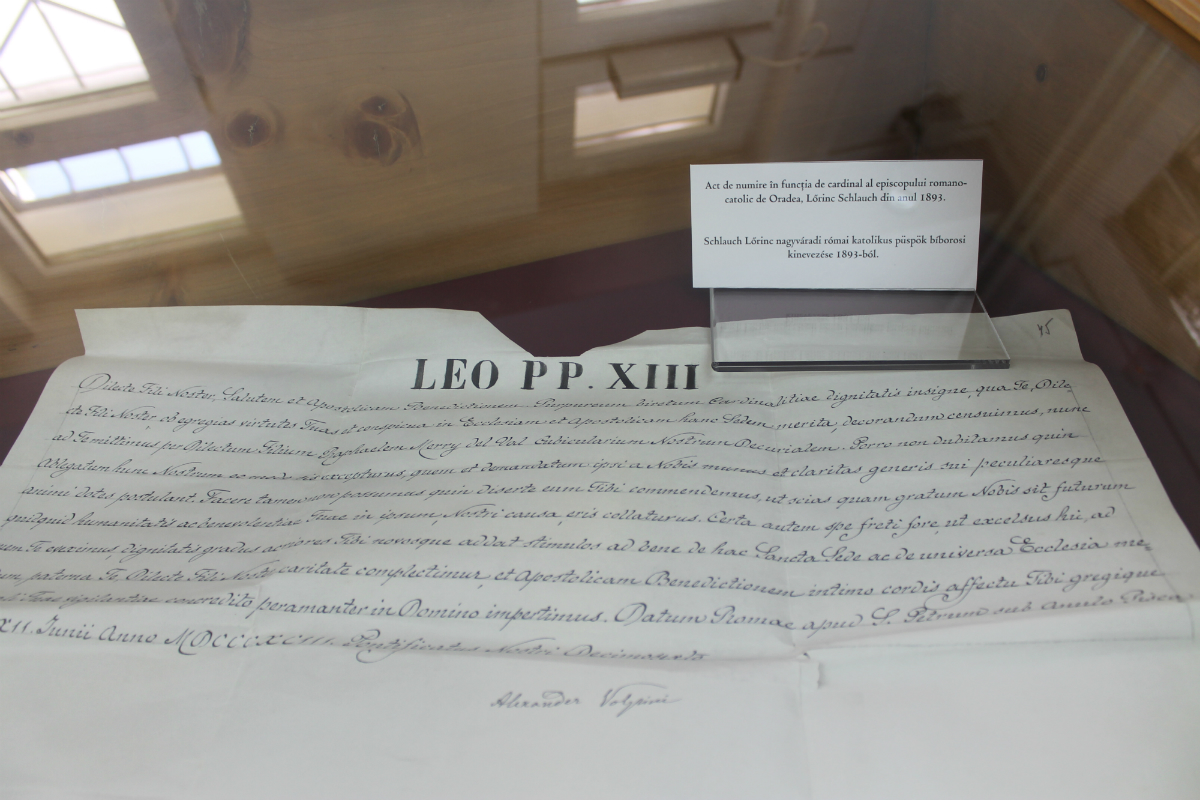 Act de numire în funcția de cardinal al episcopului romano-
catolic de Oradea, Lőrinc Schlauch din anul 1893.
Schlauch Lőrinc nagyváradi római katolikus püspök bíborosi
kinevezése 1893-ból.
45
LEO PP. XIII
Dilecte Fili Noster, Salutem et Apostolicam Benedictionem. Purpureum biretum Cardinalitiae dignitatis insigne, qua Te, Dile-
cte Fili Noster, ob egregias virtutes Tuas et conspicua in Ecclesiam et Apostolicam hanc Sedem merita, decorandum censuimus, nunc
ad Te mittimus per Dilectum Filium Raphaelem Merry del Val Cubicularium Nostrum Decurialem. Porro non dubitamus quin
Ablegatum hunc Nostrum eo modo sis excepturus, quem et demandatum ipsi a Nobis munus et claritas generis sui peculiaresque
animi dotes postulant. Facere tamen non possumus quin diserte eum Tibi commendemus, ut scias quam gratum Nobis sit futurum
quidquid humanitatis ac benevolentiae Tuae in ipsum, Nostri causa, eris collaturus. Certa autem spe freti fore, ut excelsus hic, ad
Te eveximus dignitatis gradus acriores Tibi novosque addat stimulos ad bene de hac Sancta Sede ac de universa Ecclesia me-
paterna Te, Dilecte Fili Noster caritate complectimur, et Apostolicam Benedictionem intimo cordis affectu Tibi gregique
Tuae vigilantiae concredito peramanter in Domino impertimus. Datum Romae apud S. Petrum sub Annulo
XII. Junii Anno MDCCCXCIII. Pontificatus Nostri Decimosexto
Alexander Volpini